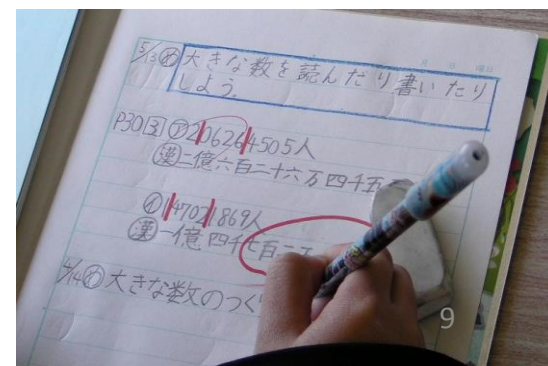 5/13 め 大きな数を読んだり書いたり
しよう。
月 日 曜日
P30 3 ㋐ 206264505人
漢 二億六百二十六万四千五
㋑ 147021869人
漢 一億四千七百二
5/14 め 大きな数のつく
9